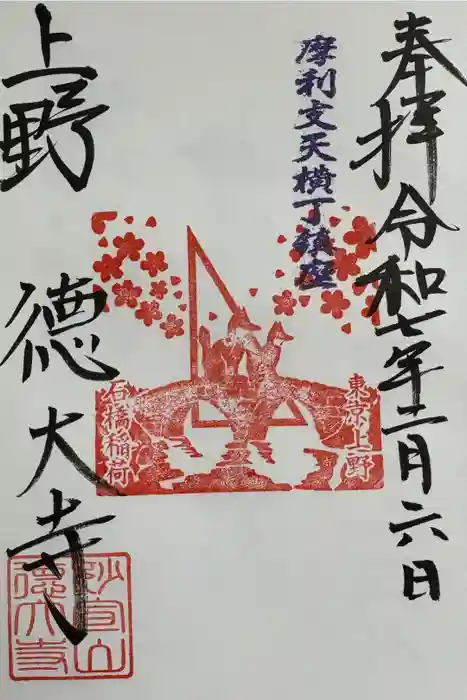 奉拝 令和七年二月六日
摩利支天横丁鎮座
東京上野
石橋稲荷
上野 徳大寺
妙宣山
徳大寺